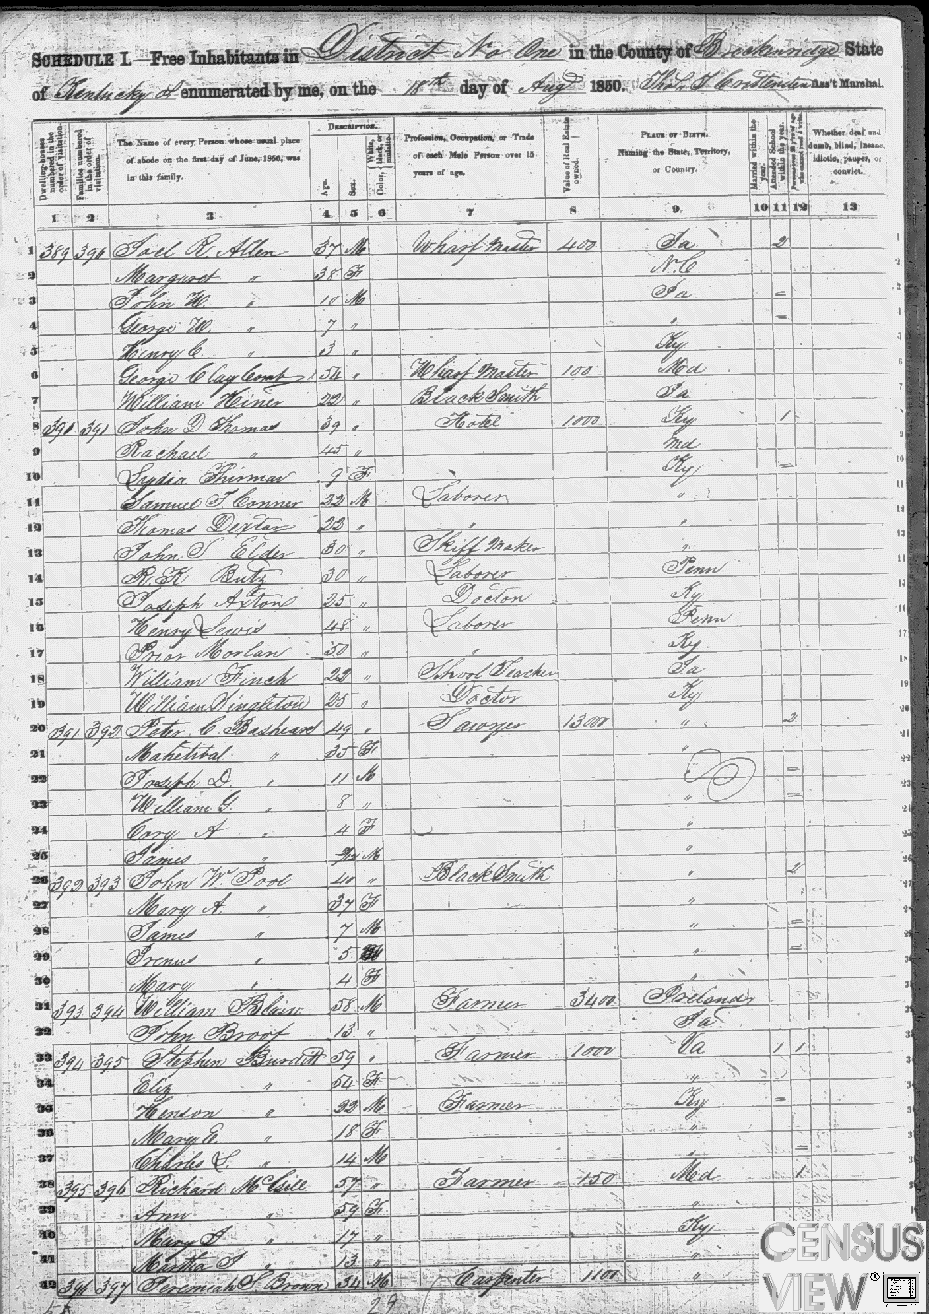 SCHEDULE I.—Free Inhabitants in District No One in the County of Breckenridge State
of Kentucky enumerated by me, on the 18th day of Augt 1850. Thos. J. Crittenden Ass't Marshal.
Dwelling-houses numbered in the order of visitation.
Families numbered in the order of visitation.
The Name of every Person whose usual place of abode on the first day of June, 1850, was in this family.
Description.
Age.
Sex.
Color, White, black, or mulatto.
Profession, Occupation, or Trade of each Male Person over 15 years of age.
Value of Real Estate owned.
Place of Birth. Naming the State, Territory, or Country.
Married within the year.
Attended School within the year.
Whether deaf and dumb, blind, insane, idiotic, pauper, or convict.
1 2 3 4 5 6 7 8 9 10 11 12 13
1 389 390 Joel R. Allen 37 M Wharf Master 400 Ia 2
2 Margaret " 38 F N.C
3 John W. " 10 M Ia =
4 George W. " 7 " " =
5 Henry C. " 3 " Ky
6 George Clay Comb 54 " Wharf Master 100 Md
7 William Hiner 22 " Black Smith Ia
8 390 391 John D Thomas 39 " Hotel 1000 Ky 1
9 Rachael " 45 " Md
10 Lydia 9 F Ky =
11 Samuel T. Conner 22 M Laborer "
12 Thomas Dexter 22 " " "
13 John S. Elder 30 " Skiff Maker "
14 R. K. Butz 30 " Laborer Penn
15 Joseph Axton 25 " Doctor Ky
16 Henry Lewis 48 " Laborer Penn
17 Prior Morlan 50 " " Ky
18 William Finch 22 " School Teacher Ia
19 William Singleton 25 " Doctor Ky
20 391 392 Peter C. Bashear 49 " Sawyer 13000 " 2
21 Mahetibal " 35 F "
22 Joseph D. " 11 M " =
23 William G. " 8 " " =
24 Cory A " 4 F "
25 James " M "
26 392 393 John W. Pool 40 " Black Smith " 2
27 Mary A. " 37 F "
28 James " 7 M " =
29 Irenus " 5 " =
30 Mary " 4 F "
31 393 394 William Blain 58 M Farmer 3400 Ireland
32 John Broof 13 " Ia
33 394 395 Stephen Burdett 59 " Farmer 1000 Va 1 1
34 Eliz " 54 F "
35 Henson " 22 M Farmer Ky =
36 Mary E. " 18 F "
37 Charles S. " 14 M " =
38 395 396 Richard McGill 57 " Farmer 450 Md 1
39 Ann " 59 F "
40 Mary J. " 17 " Ky
41 Martha J " 13 " "
42 396 397 Jeremiah S. Brown 34 M Carpenter 1100 "
29
CENSUS
VIEW®